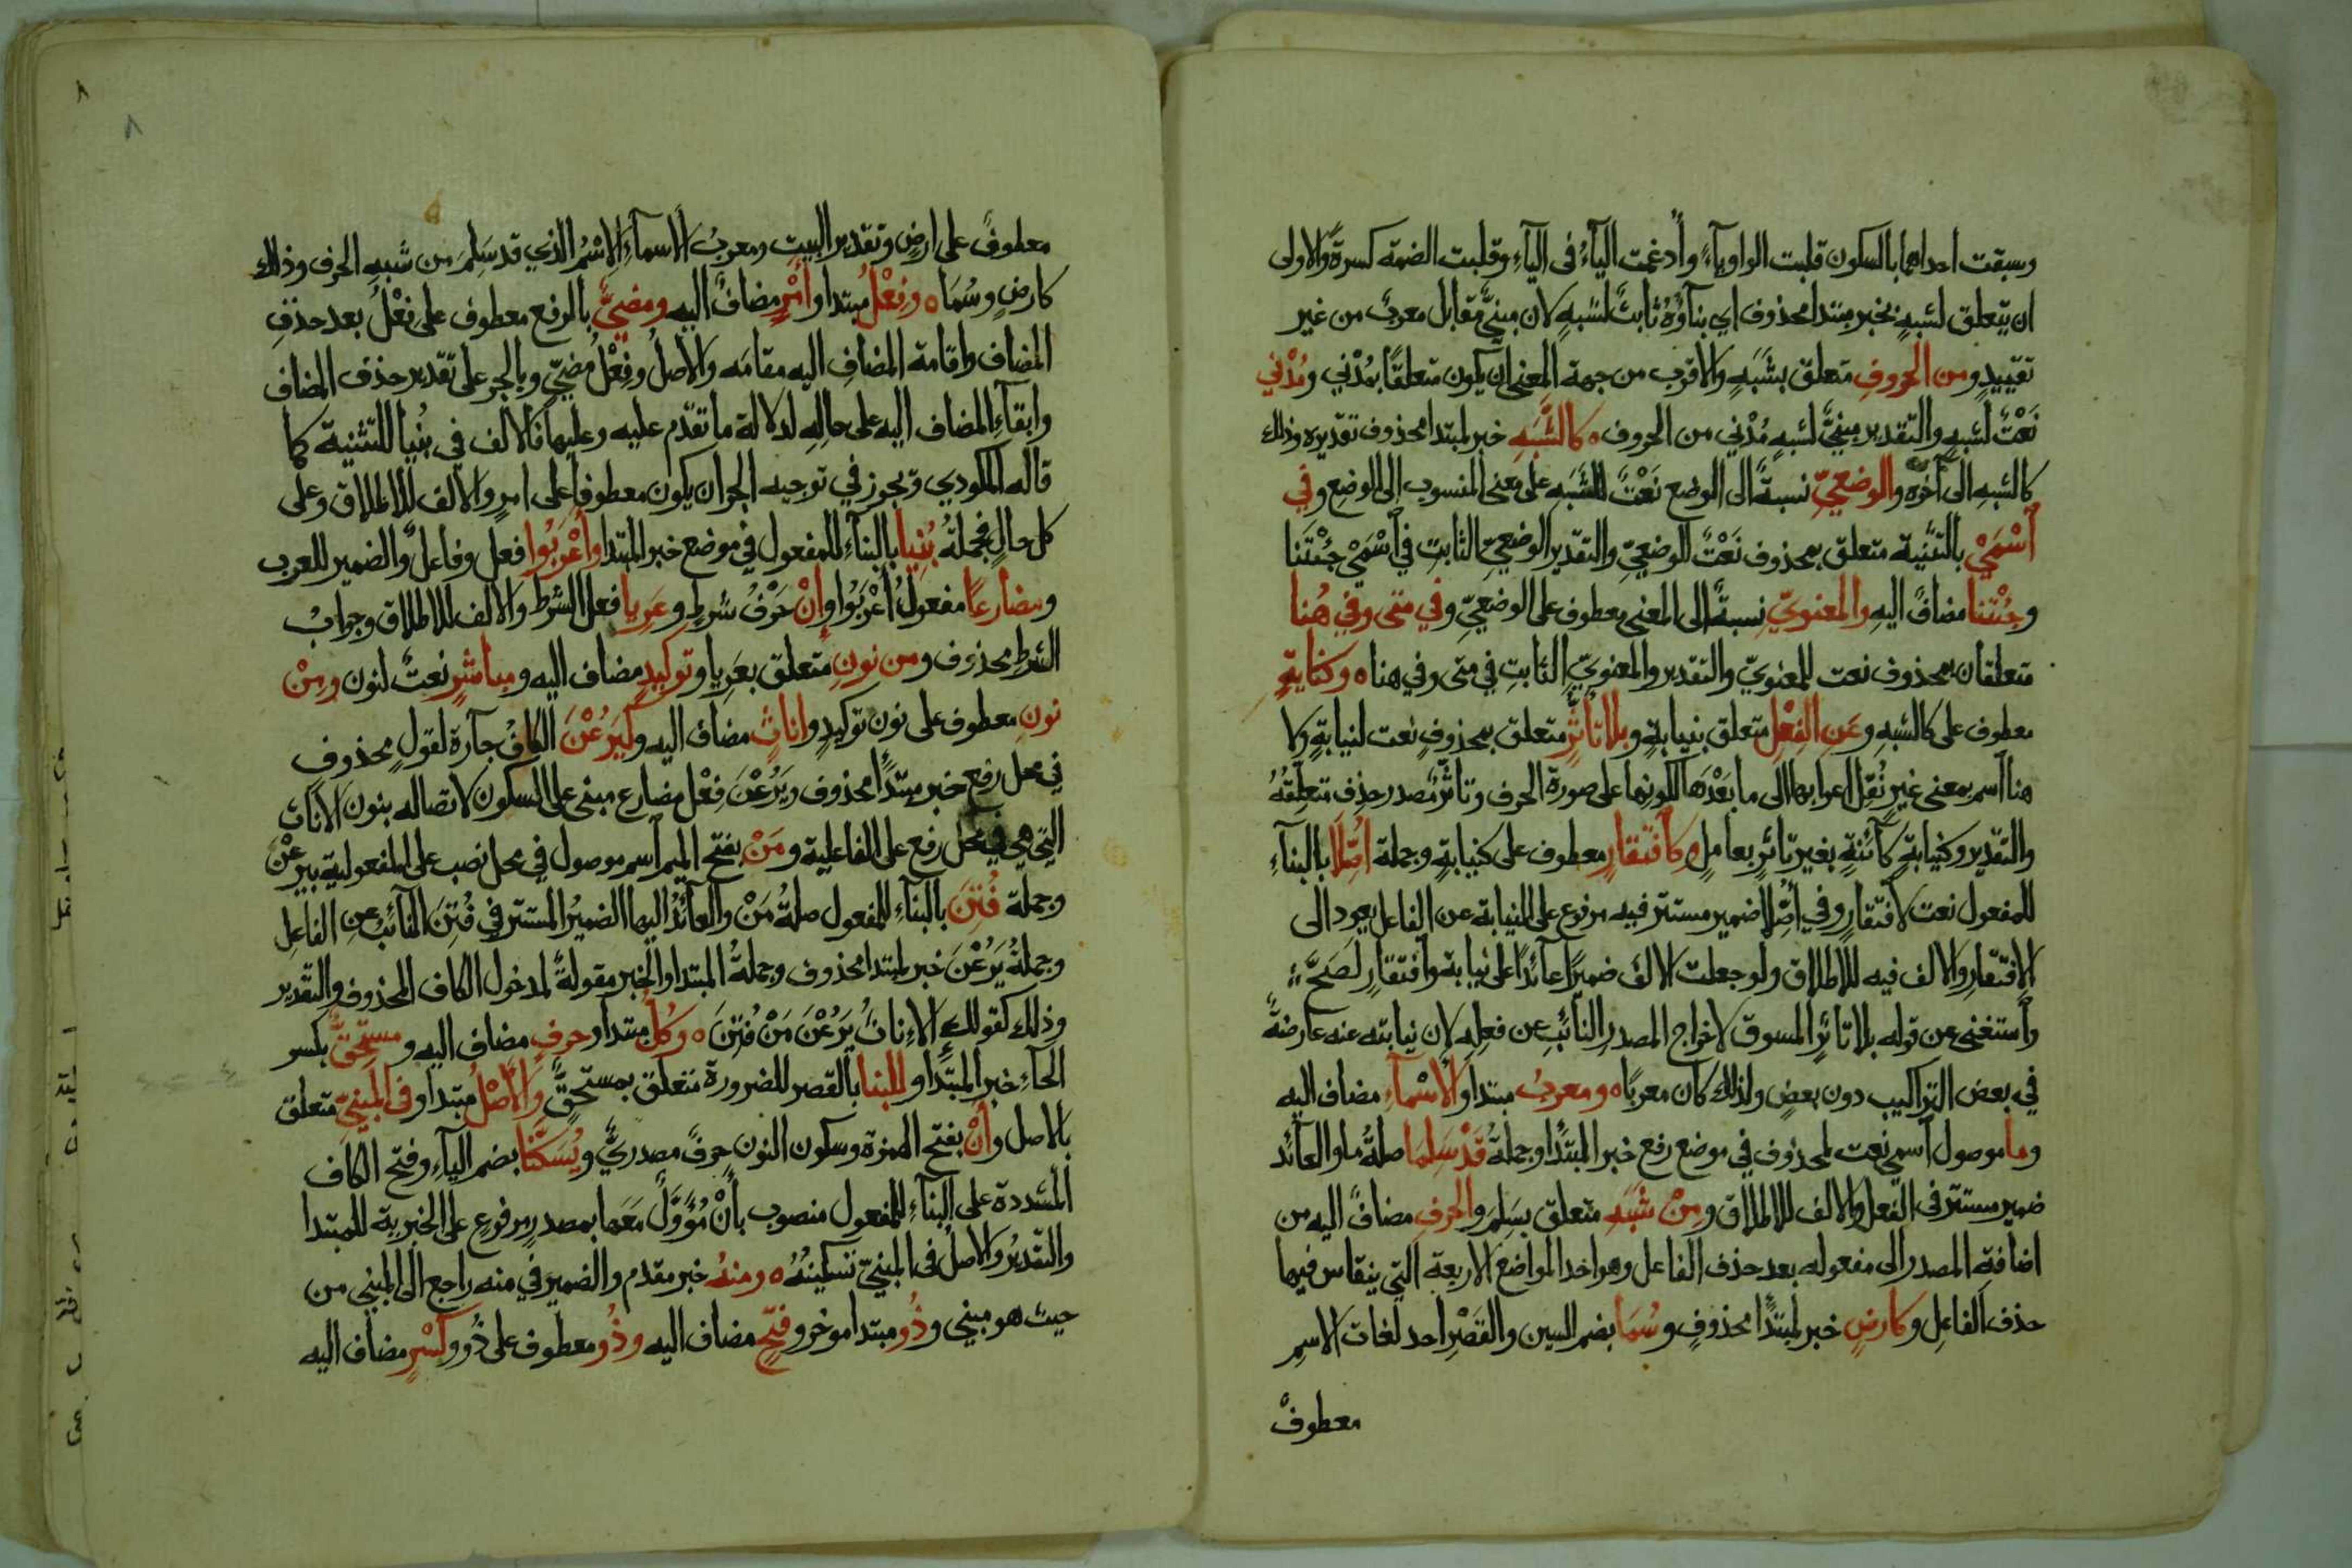 وسبقت احداهما بالسكون قلبت الواو ياءً وأُدغمت الياءُ فى الياءِ وقلبت الضمة كسرةً والاولى
ان يتعلق لشبهٍ بخبر مبتدا محذوف اي بناؤُهُ ثابتٌ لشبهٍ لان مبنيٌّ مقابل معربٌ من غير
تقييدٍ ومن الحروفِ متعلق بشَبَهٍ والاقرب من جهة المعنى ان يكون متعلقًا بمُدْني ومُدْني
نَعْتٌ لشبهٍ والتقدير مبنيٌّ لشبهٍ مُدْنيٍ من الحروف ه كالشَّبَهِ خبر لمبتدا محذوف تقديره وذلك
كالشبهِ الى آخره والوضعيِّ نسبةً الى الوضع نَعْتٌ للشبَهِ على معنى المنسوب الى الوضعِ وفي
اسْمَيْ بالتثنية متعلق بمحذوف نَعْتٌ للوضعيِّ والتقدير الوضعيِّ الثابتِ في اسْمَيْ جِئْتَنا
وجِئْتنا مضافٌ اليهِ والمعنويِّ نِسبةً الى المعنى معطوف على الوضعيِّ وفي متى وفي هُنا
متعلقان بمحذوف نعت للمعنويّ والتقدير والمعنويِّ الثابتِ في متى وفي هنا ه وكنيابةٍ
معطوف على كالشبهِ وعَنِ الفِعْلِ متعلق بنيابةٍ وبلا تأثُّرٍ متعلق بمحذوفٍ نعت لنيابةٍ ولا
هنا اسم بمعنى غيرٍ نُقِلَ اعرابها الى ما بَعْدَها لكونها على صورة الحرف وتأثّرٌ مصدر حذف متعلِّقُهُ
والتقدير وكنيابةٍ كائنةٍ بغير تأثرٍ بعاملٍ ه وكافتقارٍ معطوف على كنيابةٍ وجملة اصِّلا بالبناءِ
للمفعول نعت لافتقارٍ وفي أصِّلا ضمير مستتر فيه مرفوع على النيابة عن الفاعل يعود الى
الافتقارِ والالف فيه للاطلاق ولو جعلت الالف ضميرًا عائدًا على نيابة وافتقارٍ لصَحَّ
واستغنى عن قوله بلا تأثرٍ المسوق لاخراج المصدر النائبِ عن فعله لان نيابته عنه عارضةٌ
في بعض التراكيب دون بعضٍ ولذلك كان معربًا ه ومعربُ مبتدا والأسْماءِ مضاف اليه
وما موصول اسميّ نعت لمحذوف في موضع رفع خبر المبتدا وجملةُ قَدْ سَلِمَا صلةُ ما والعائد
ضمير مستتر فى الفعل والالف للاطلاق ومِنْ شَبَهِ متعلق بسَلِمَ والحرفِ مضافٌ اليه من
اضافة المصدر الى مفعوله بعد حذف الفاعل وهو احد المواضع الاربعة التي ينقاس فيها
حذف الفاعِل وكأرضٍ خبر لمبتدًا محذوفٍ وسُمَا بضم السين والقَصْرِ احد لغات الاسمِ
معطوفٌ
٨
٨
معطوفٌ على ارضٍ وتقدير البيت ومعربُ الاسماءِ الاسْمُ الذي قد سَلِمَ من شبهِ الحرف وذلك
كارضٍ وسُمَا ه وفِعْلُ مبتدا وأمْرٍ مضافٌ اليه ومضيٌّ بالرفع معطوف على فِعْلُ بعد حذفِ
المضاف واقامة المضافِ اليه مقامَه والاصلُ وفِعْلُ مُضيٍّ وبالجر على تقدير حذف المضاف
وابقاءِ المضاف اليه على حاله لدلالة ما تقدّم عليه وعليهما فالالف في بُنِيا للتثنية كما
قاله المكودي ويجوز في توجيه الجر ان يكون معطوفا على امرٍ والالف للاطلاق وعلى
كل حالٍ فجملةُ بُنِيا بالبناءِ للمفعول في موضع خبر المبتدا وأعْرَبُوا فعل وفاعلٌ والضمير للعرب
ومضارعًا مفعولُ أعْرَبُوا وإنْ حَرْفُ شرطٍ وعَرِيا فعل الشرط والالف للاطلاق وجوابُ
الشرطِ محذوف ومن نونِ متعلق بعَرِيا وتوكيدٍ مضاف اليه ومباشرٍ نعتٌ لنون ومِنْ
نونِ معطوف على نون توكيدٍ واناثٍ مضاف اليه وكَيَرُعْنَ الكافُ جارة لقولٍ محذوفٍ
في محل رفع خبر مبتدًا محذوف ويَرُعْنَ فِعْل مضارع مبني على السكون لاتصاله بنون الاناث
التي هي في محل رفع على الفاعلية ومَنْ بفتح الميم اسم موصول في محل نصب على المفعولية بيرعْنَ
وجملة فُتِنَ بالبناءِ للمفعول صلةُ مَنْ والعائدُ اليها الضميرُ المستتر في فُتِنَ النائبُ عن الفاعِلِ
وجملةُ يَرُعْنَ خبر لمبتدا محذوف وجملةُ المبتدا والخبر مقولةٌ لمدخول الكاف المحذوف والتقدير
وذلك كقولك الاناثُ يَرُعْنَ مَنْ فُتِنَ ه وكُلُّ مبتدا وحرفٍ مضاف اليه ومستحِقٌّ بكسر
الحاءِ خبر المبتدا وللبنا بالقصر للضرورة متعلق بمستحقٌّ والأصْلُ مبتدا وفى المبنيِّ متعلق
بالاصل وأنْ بفتح الهمزة وسكون النون حرفٌ مصدريٌّ ويُسَكَّنَا بضم الياءِ وفتح الكاف
المشددة على البناءِ للمفعول منصوب بأنْ مُؤَوَّلٌ مَعَها بمصدرٍ مرفوعٍ على الخبرية للمبتدا
والتقديرُ والاصلُ فى المبنيّ تسكينُهُ ه ومنهُ خبر مقدم والضمير في منه راجع الى المبني من
حيث هو مبني وذُو مبتدا موخر وفتحٍ مضاف اليه وذُو معطوف على ذُو وكَسْرٍ مضاف اليه